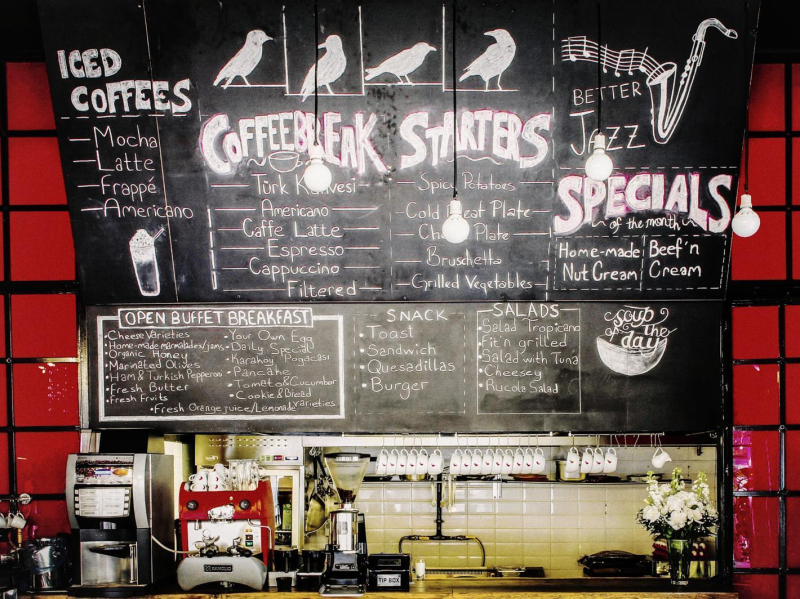 ICED
COFFEES
Mocha
Latte
Frappé
Americano
COFFEEBREAK
Türk
Americano
Caffe Latte
Espresso
Cappuccino
Filtered
STARTERS
Spicy Potatoes
Cold Plate
Plate
Bruschetta
Grilled Vegetables
BETTER
JAZZ
SPECIALS
of the month
Home-made
Nut Cream
Beef'n
Cream
OPEN BUFFET BREAKFAST
Cheese Varieties
Home-made marmalades/jams
Organic Honey
Marinated Olives
Ham & Turkish Pepperoni
Fresh Butter
Fresh Fruits
Your Own Egg
Daily Special
Karaköy Pogacası
Pancake
Tomato & Cucumber
Cookie & Bread
Varieties
Fresh Orange juice/Lemonade
SNACK
Toast
Sandwich
Quesadillas
Burger
SALADS
Salad Tropicano
Fit'n grilled
Salad with Tuna
Cheesey
Rucola Salad
soup
of the
day
TIP BOX